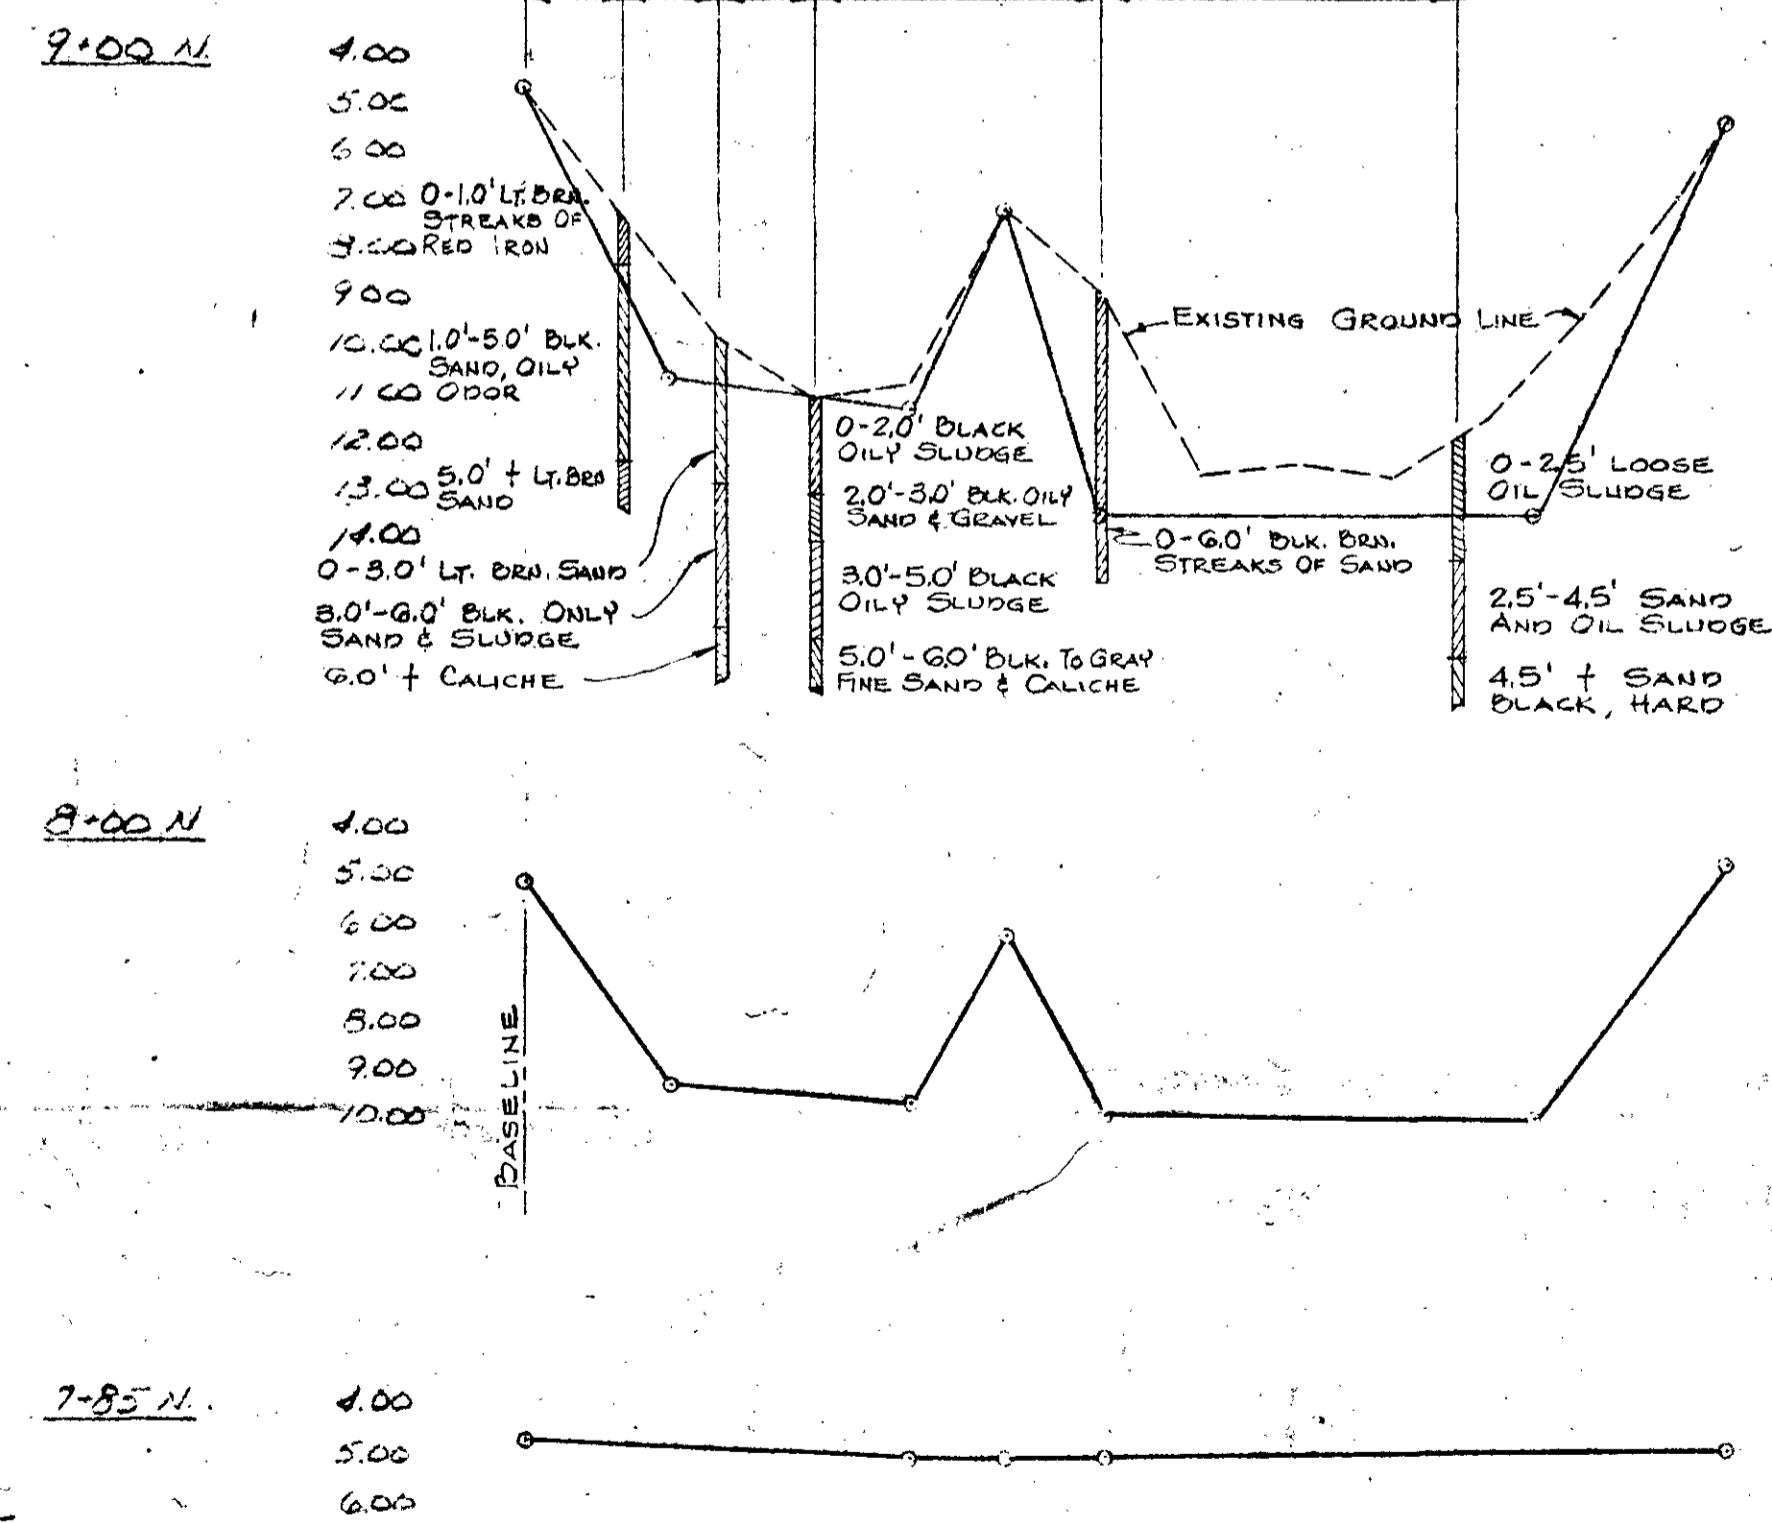 9+00 N.
4.00
5.00
6.00
7.00
8.00
9.00
10.00
11.00
12.00
13.00
14.00
0-1.0' LT. BRN.
STREAKS OF
RED IRON
1.0'-5.0' BLK.
SAND, OILY
ODOR
5.0' + LT. BRN
SAND
0-3.0' LT. BRN. SAND
3.0'-6.0' BLK. ONLY
SAND & SLUDGE
6.0' + CALICHE
0-2.0' BLACK
OILY SLUDGE
2.0'-3.0' BLK. OILY
SAND & GRAVEL
3.0'-5.0' BLACK
OILY SLUDGE
5.0'-6.0' BLK. TO GRAY
FINE SAND & CALICHE
EXISTING GROUND LINE
0-6.0' BLK. BRN.
STREAKS OF SAND
0-2.5' LOOSE
OIL SLUDGE
2.5'-4.5' SAND
AND OIL SLUDGE
4.5' + SAND
BLACK, HARD
8+00 N
4.00
5.00
6.00
7.00
8.00
9.00
10.00
BASELINE
7+85 N.
4.00
5.00
6.00